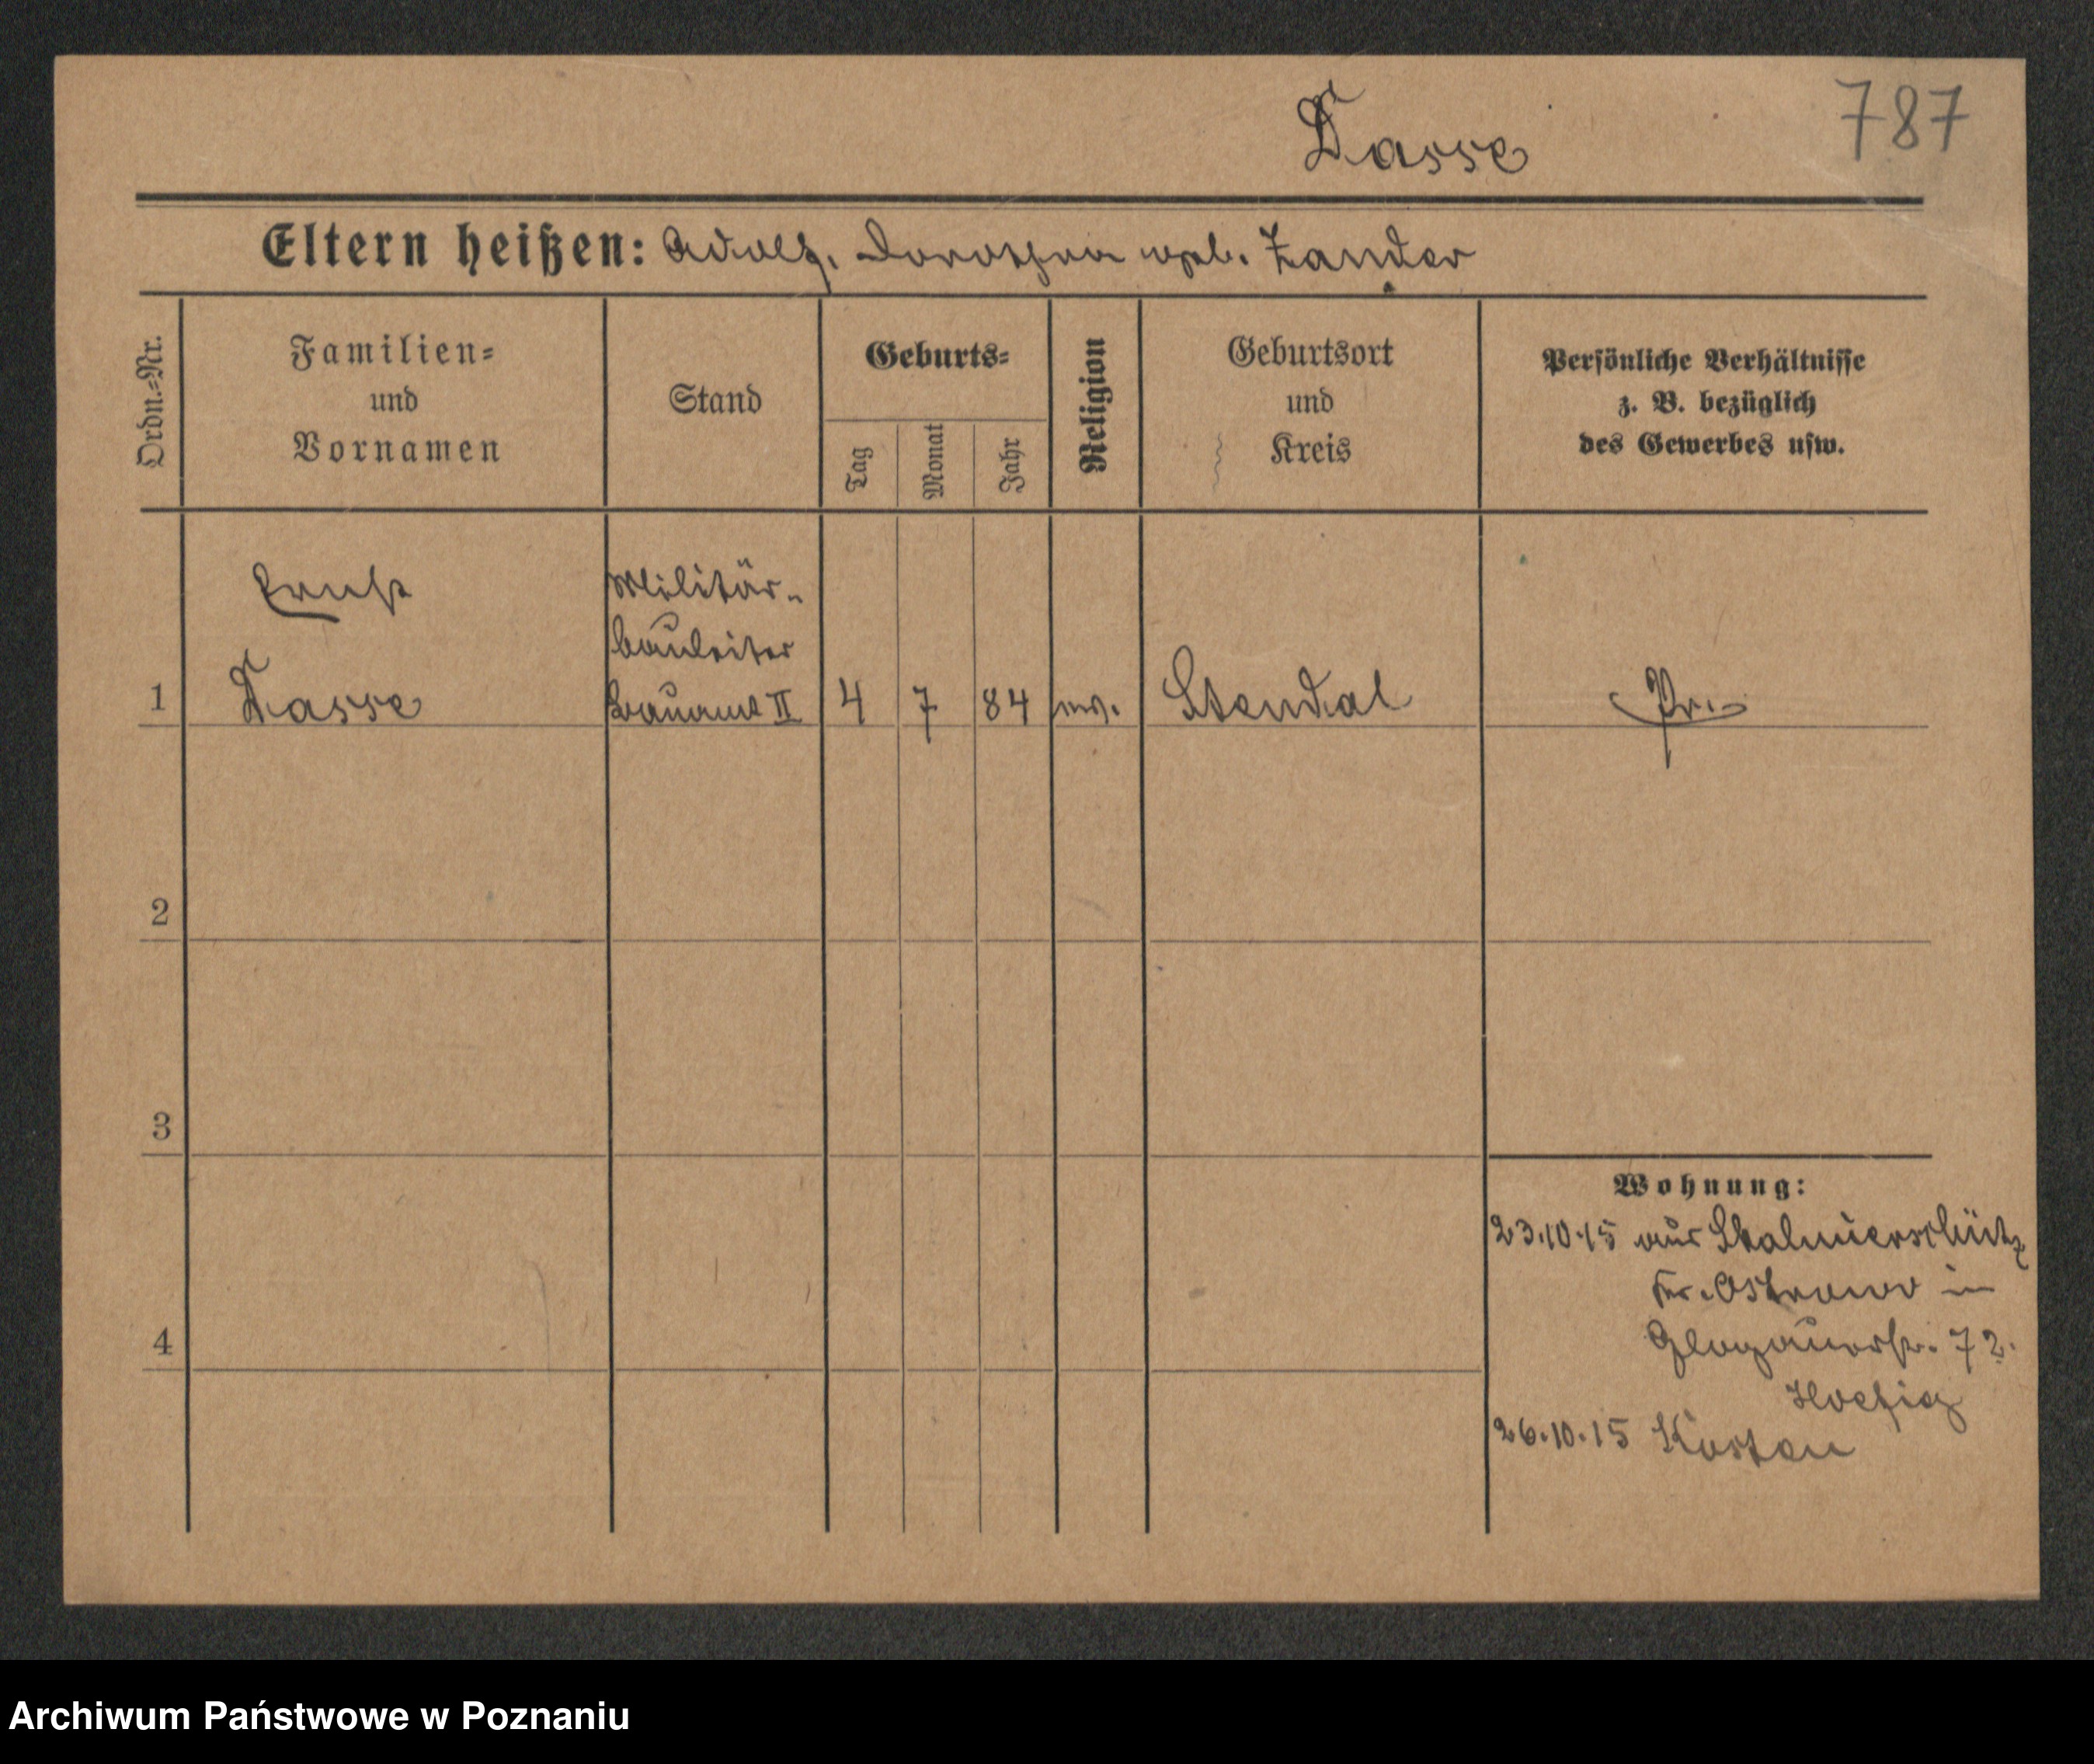 787
Dasse
Eltern heißen: Adolf, Dorothea geb. Zander
Ordn.-Nr.
Familien-
und
Vornamen
Stand
Geburts-
Tag
Monat
Jahr
Religion
Geburtsort
und
Kreis
Persönliche Verhältnisse
z. B. bezüglich
des Gewerbes usw.
Ernst
Militär-
bauleiter
1 Dasse Bauamt II 4 7 84 ev. Stendal Pr.
2
3
4
Wohnung:
23.10.15 aus Skalmierschütz
Kr. Ostrowo in
Glogauerstr. 72.
26.10.15 Kosten
Archiwum Państwowe w Poznaniu